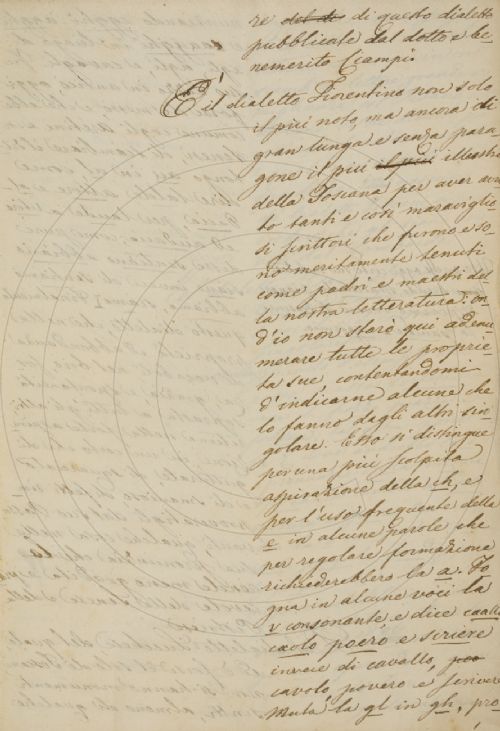 re del di di questo dialetto
pubblicate dal dotto e be-
nemerito Ciampi.
È il dialetto Fiorentino non solo
il più noto, ma ancora di
gran lunga e senza para
gone il più il più illustre
della Toscana per aver avu
to tanti e così maraviglio-
si scrittori che furono e so-
no meritamente tenuti
come padri e maestri del-
la nostra letteratura: on
d'io non starò qui ad enu
merare tutte le proprie-
tà sue, contentandomi
d'indicarne alcune che
lo fanno dagli altri sin-
golare. Esso si distingue
per una più scolpita
aspirazione della ch, e
per l'uso frequente della
e in alcune parole che
per regolare formazione
richiederebbero la a. Fo
gna in alcune voci la
v consonante e dice caallo
caolo poero e scriere
invece di cavallo,
cavolo, povero e scrivere
Muta la gl in gh, pro